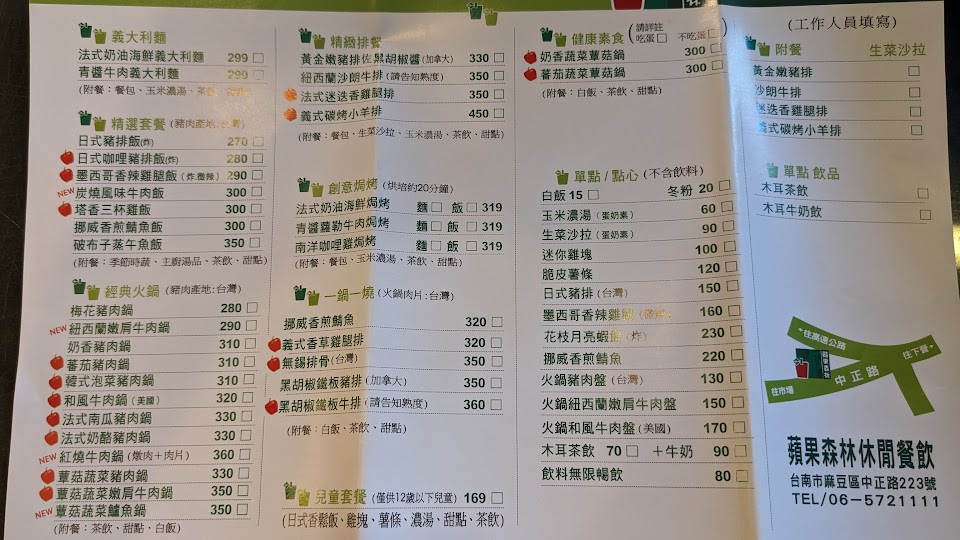 義大利麵
法式奶油海鮮義大利麵 299
青醬牛肉義大利麵 299
(附餐：餐包、玉米濃湯、茶飲、甜點)
精選套餐 (豬肉產地:台灣)
日式豬排飯(炸) 270
日式咖哩豬排飯(炸) 280
墨西哥香辣雞腿飯(炸.微辣) 290
NEW 炭燒風味牛肉飯 300
塔香三杯雞飯 300
挪威香煎鯖魚飯 300
破布子蒸午魚飯 350
(附餐：季節時蔬、主廚湯品、茶飲、甜點)
經典火鍋 (豬肉產地:台灣)
梅花豬肉鍋 280
NEW 紐西蘭嫩肩牛肉鍋 290
奶香豬肉鍋 310
蕃茄豬肉鍋 310
韓式泡菜豬肉鍋 310
和風牛肉鍋(美國) 320
法式南瓜豬肉鍋 330
法式奶酪豬肉鍋 330
NEW 紅燒牛肉鍋(燉肉+肉片) 360
蕈菇蔬菜豬肉鍋 330
NEW 蕈菇蔬菜嫩肩牛肉鍋 350
NEW 蕈菇蔬菜鱸魚鍋 350
(附餐：茶飲、甜點、白飯)
精緻排餐
黃金嫩豬排佐黑胡椒醬(加拿大) 330
紐西蘭沙朗牛排(請告知熟度) 350
法式迷迭香雞腿排 350
義式碳烤小羊排 450
(附餐：餐包、生菜沙拉、玉米濃湯、茶飲、甜點)
創意焗烤 (烘培約20分鐘)
法式奶油海鮮焗烤 麵 飯 319
青醬蘿勒牛肉焗烤 麵 飯 319
南洋咖哩雞焗烤 麵 飯 319
(附餐：餐包、玉米濃湯、茶飲、甜點)
一鍋一燒 (火鍋肉片:台灣)
挪威香煎鯖魚 320
義式香草雞腿排 320
無錫排骨(台灣) 350
黑胡椒鐵板豬排(加拿大) 350
黑胡椒鐵板牛排(請告知熟度) 360
(附餐：白飯、茶飲、甜點)
兒童套餐 (僅供12歲以下兒童) 169
(日式香鬆飯、雞塊、薯條、濃湯、甜點、茶飲)
健康素食 (請詳註 吃蛋 不吃蛋)
奶香蔬菜蕈菇鍋 300
蕃茄蔬菜蕈菇鍋 300
(附餐：白飯、茶飲、甜點)
單點/點心 (不含飲料)
白飯 15 冬粉 20
玉米濃湯(蛋奶素) 60
生菜沙拉(蛋奶素) 90
迷你雞塊 100
脆皮薯條 120
日式豬排(台灣) 150
墨西哥香辣雞腿 160
花枝月亮蝦餅(炸) 230
挪威香煎鯖魚 220
火鍋豬肉盤(台灣) 130
火鍋紐西蘭嫩肩牛肉盤 150
火鍋和風牛肉盤(美國) 170
木耳茶飲 70 +牛奶 90
飲料無限暢飲 80
(工作人員填寫)
附餐 生菜沙拉
黃金嫩豬排
沙朗牛排
迷迭香雞腿排
義式碳烤小羊排
單點 飲品
木耳茶飲
木耳牛奶飲
往高速公路
往下營
中正路
往市場
蘋果森林休閒餐飲
台南市麻豆區中正路223號
TEL/06-5721111